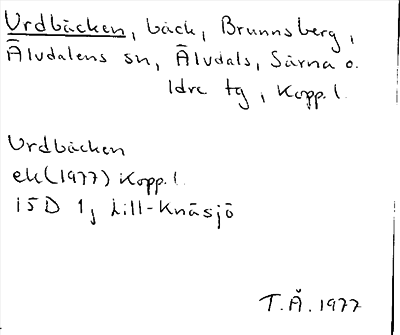 Urdbäcken, bäck, Brunnsberg,
Älvdalens sn, Älvdals, Särna o.
Idre tg, Kopp. l.
Urdbäcken
ek (1977) Kopp. l.
15D 1j Lill-Knäsjö
T.Å. 1977